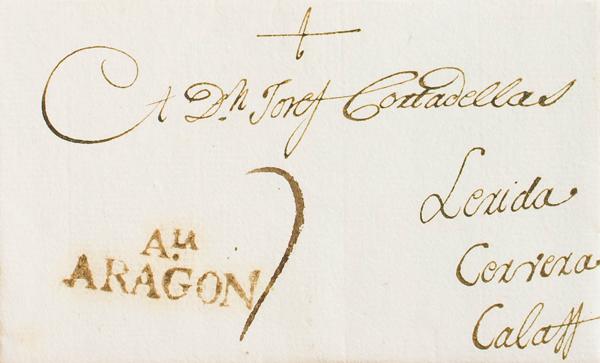 A Dn Josef Cortadellas
Lerida
Cervera
Calaff
7
A.u
ARAGON